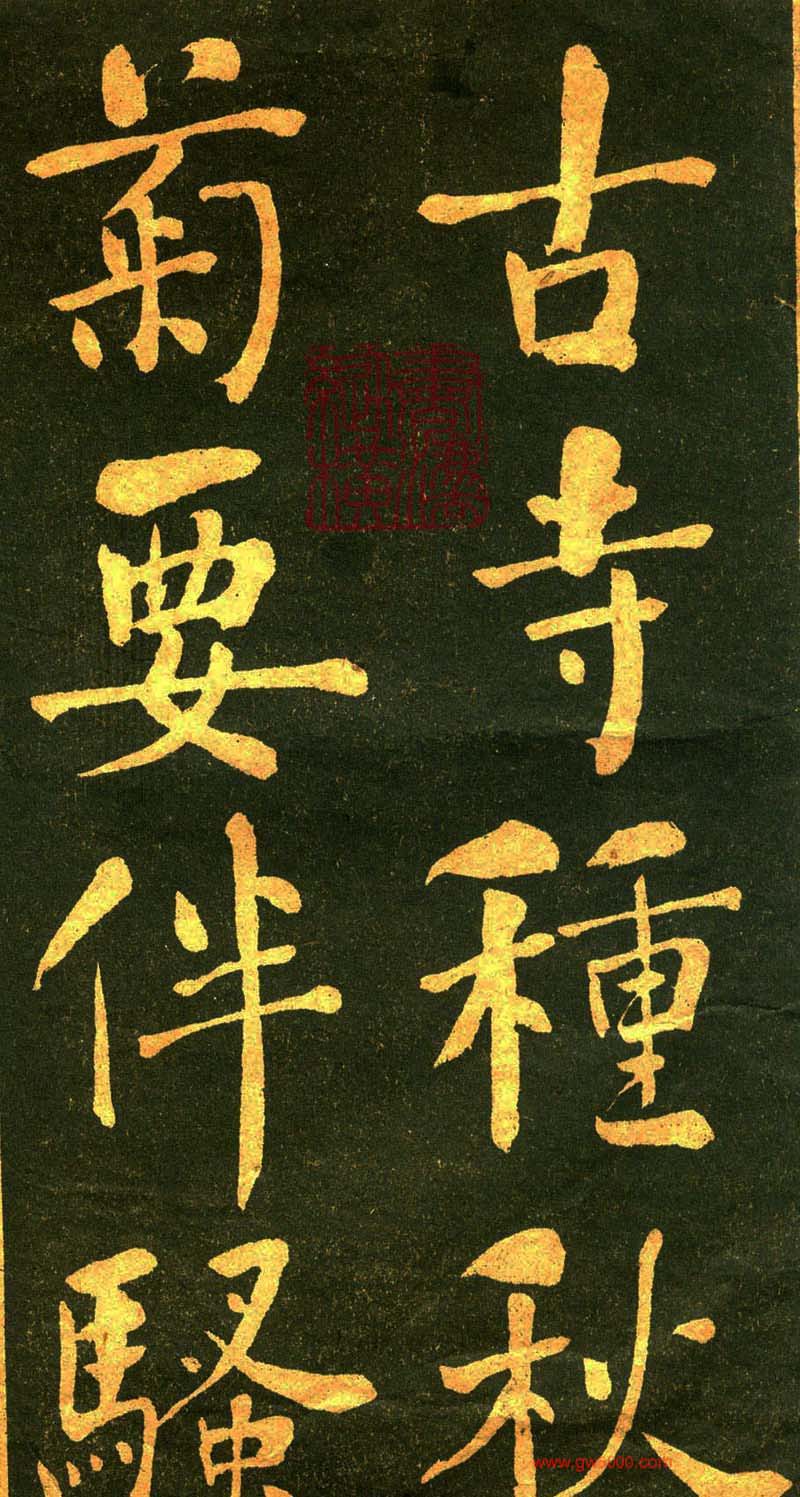 古寺種秋
菊要伴騷
www.gw8000.com